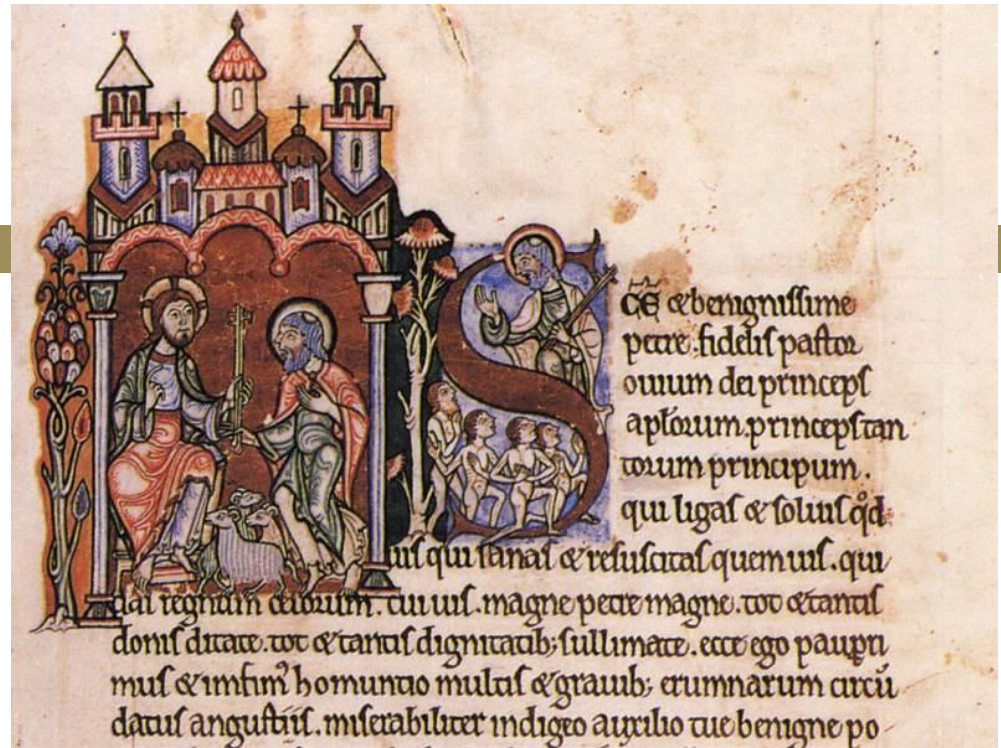 S
c̄e & benignissime
petre. fidelis pastor
ouium dei princeps
apl̄orum. princeps tan
torum principum.
qui ligas & soluis qd̄
uis qui sanas & resuscitas quem uis. qui
das regnum celorum. cui uis. magne petre magne. tot & tantis
donis ditate. tot & tantis dignitatib; sullimate. ecce ego paup̱ri
mus & imfimꝰ homuntio multis & grauib; erumnarum circū
datus angustiis. miserabiliter indigeo auxilio tue benigne po